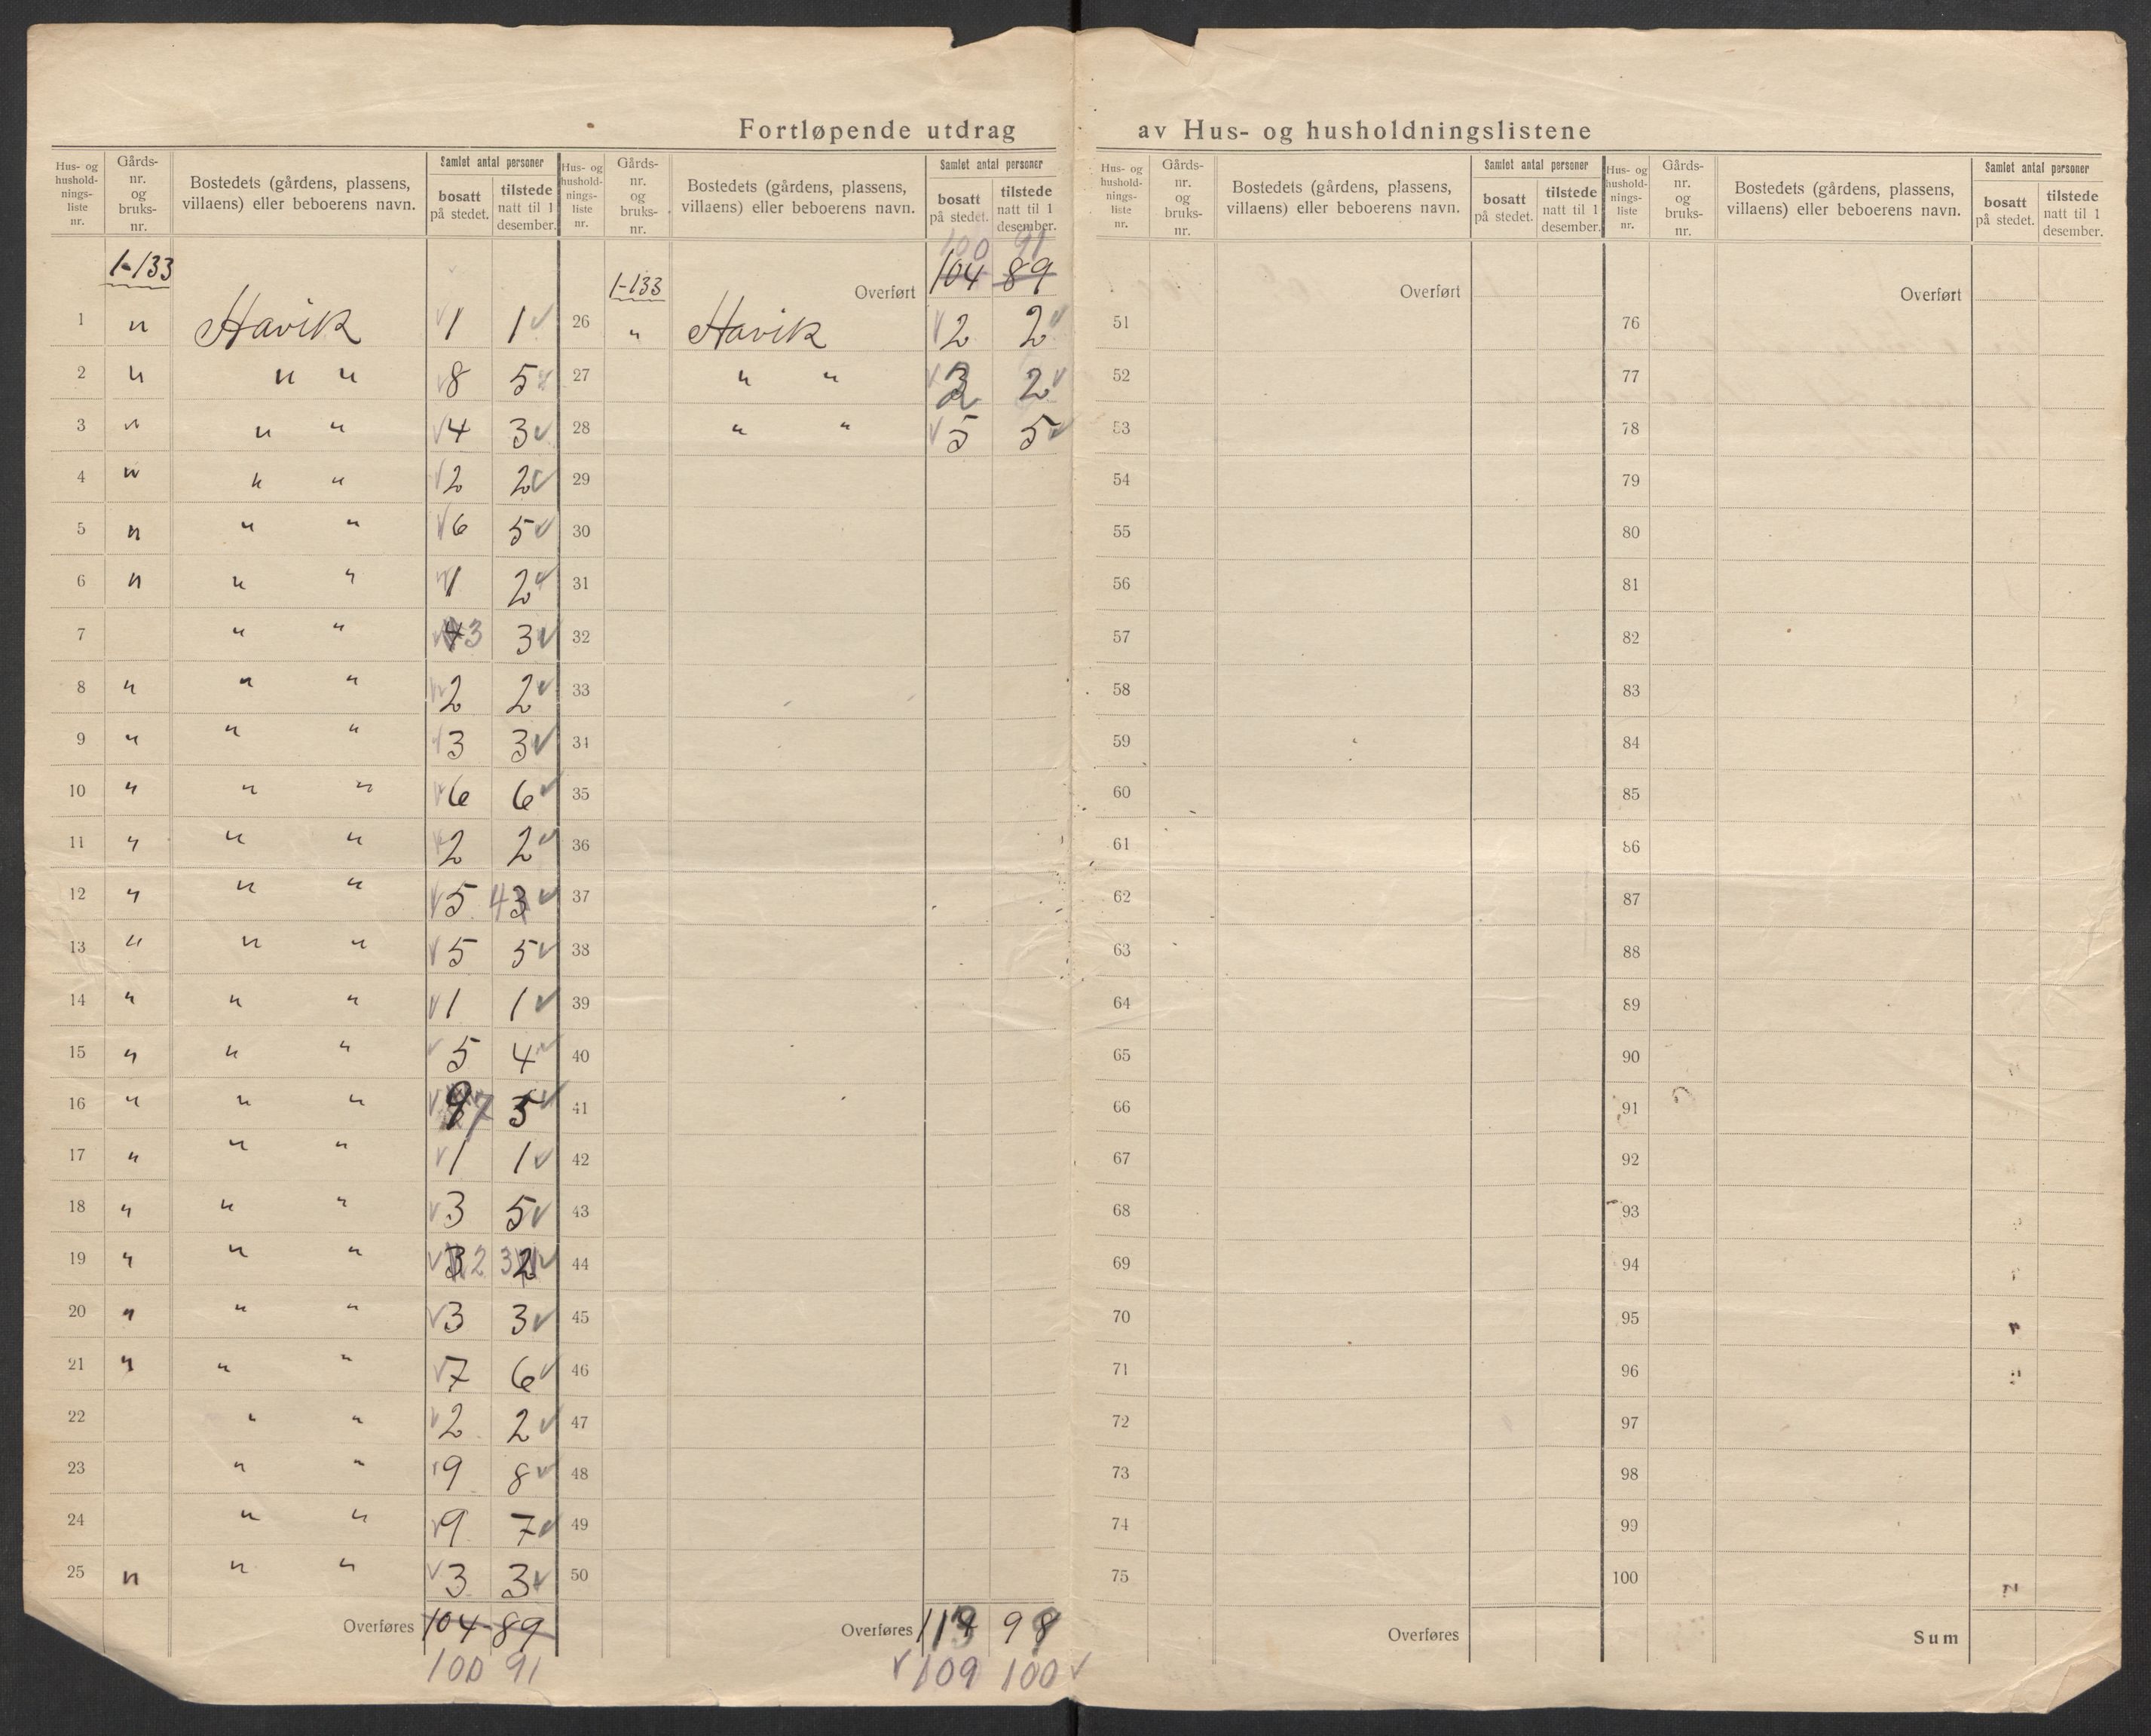 Fortløpende utdrag av Hus- og husholdningslistene
Hus- og husholdnings-liste nr. Gårds-nr. og bruks-nr. Bostedets (gårdens, plassens, villaens) eller beboerens navn. Samlet antal personer bosatt på stedet. tilstede natt til 1 desember.
1-133
1 " Havik 1 1
2 " " " 8 5
3 " " " 4 3
4 " " " 2 2
5 " " " 6 5
6 " " " 1 2
7 " " 4 3 3
8 " " " 2 2
9 " " " 3 3
10 " " " 6 6
11 " " " 2 2
12 " " " 5 4 3
13 " " " 5 5
14 " " " 1 1
15 " " " 5 4
16 " " " 7 5
17 " " " 1 1
18 " " " 3 5
19 " " " 3 2 3 2
20 " " " 3 3
21 " " " 7 6
22 " " 2 2
23 " " 9 8
24 " " 9 7
25 " " " 3 3
Overføres 104 89
100 91
Hus- og husholdnings-liste nr. Gårds-nr. og bruks-nr. Bostedets (gårdens, plassens, villaens) eller beboerens navn. Samlet antal personer bosatt på stedet. tilstede natt til 1 desember.
100 91
1-133 Overført 104 89
26 " Havik 2 2
27 " " 2 2
28 " " 5 5
29
30
31
32
33
34
35
36
37
38
39
40
41
42
43
44
45
46
47
48
49
50
Overføres 113 98
109 100
Hus- og hushold-nings-liste nr. Gårds-nr. og bruks-nr. Bostedets (gårdens, plassens, villaens) eller beboerens navn. Samlet antal personer bosatt på stedet. tilstede natt til 1 desember.
Overført
51
52
53
54
55
56
57
58
59
60
61
62
63
64
65
66
67
68
69
70
71
72
73
74
75
Overføres
Hus- og hushold-nings-liste nr. Gårds-nr. og bruks-nr. Bostedets (gårdens, plassens, villaens) eller beboerens navn. Samlet antal personer bosatt på stedet. tilstede natt til 1 desember.
Overført
76
77
78
79
80
81
82
83
84
85
86
87
88
89
90
91
92
93
94
95
96
97
98
99
100
Sum